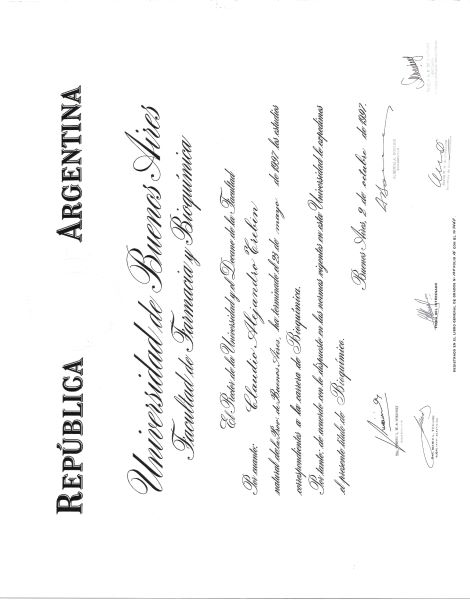 REPÚBLICA ARGENTINA
Universidad de Buenos Aires
Facultad de Farmacia y Bioquímica
El Rector de la Universidad y el Decano de la Facultad
Por cuanto: Claudio Alejandro Crebin
natural de la Prov. de Buenos Aires, ha terminado el 23 de mayo de 1997 los estudios
correspondientes a la carrera de Bioquímica.
Por tanto: de acuerdo con lo dispuesto en las normas vigentes en esta Universidad le expedimos
el presente título de Bioquímico.
Buenos Aires, 2 de octubre de 1997.
FIRMA DEL INTERESADO
REGISTRADO EN EL LIBRO GENERAL DE GRADOS N° FOLIO CON EL N°